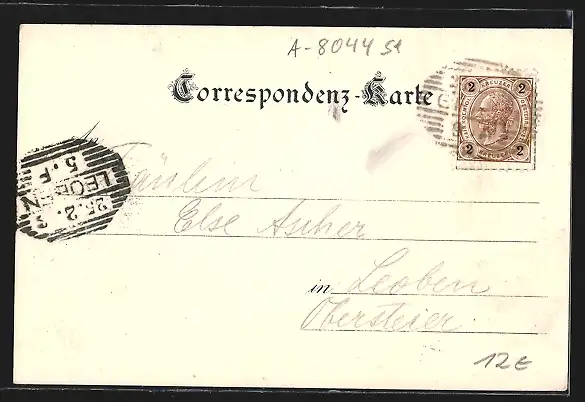 A-8044 St
Correspondenz-Karte
2 KREUZER 2
2 2
An
Fräulein
Else Ascher
in Leoben
Obersteier
LEOBEN
25.2.
5.F
12€